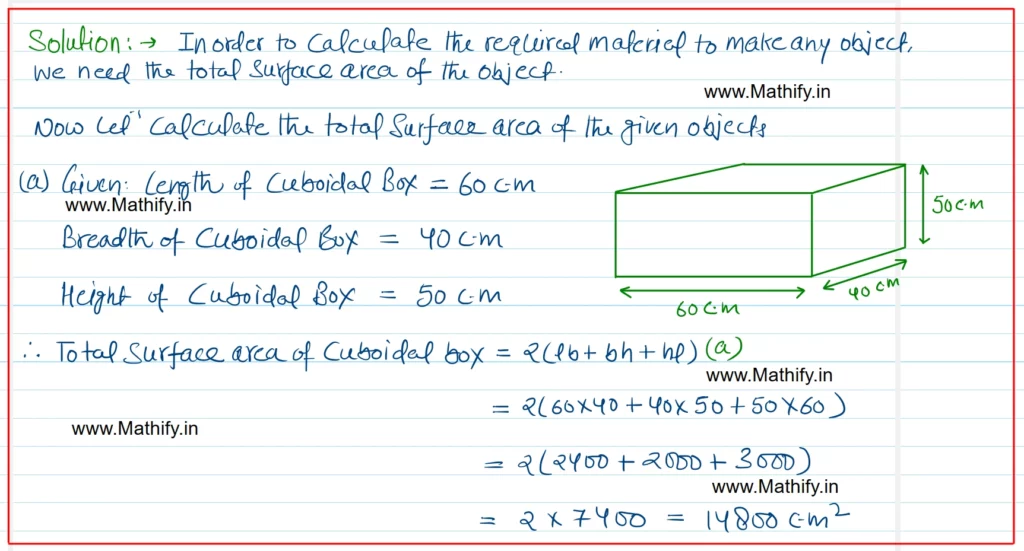 Solution: → In order to calculate the required material to make any object,
we need the total surface area of the object.
www.Mathify.in
Now Let' calculate the total surface area of the given objects
(a) Given: Length of Cuboidal Box = 60 cm
www.Mathify.in
Breadth of Cuboidal Box = 40 cm
Height of Cuboidal Box = 50 cm
50 cm
40 cm
60 cm
∴ Total surface area of Cuboidal box = 2(lb + bh + hl) (a)
www.Mathify.in
= 2(60×40 + 40×50 + 50×60)
www.Mathify.in
= 2(2400 + 2000 + 3000)
www.Mathify.in
= 2 × 7400 = 14800 cm²